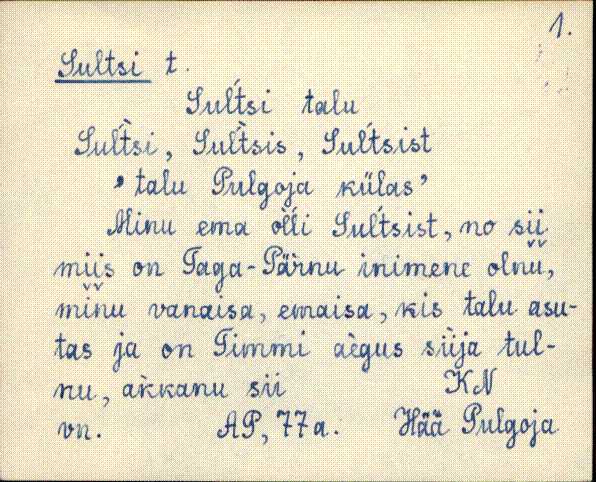 1.
Sultsi t.
Sul't́si talu
Sul't̀si, Sul't̀sis, Sul't́sist
‚talu Pulgoja külas’
Minu ema òĺli Sul't́sist, no sii
miis on Taga-Pä̀rnu inimene olnu,
minu vanaisa, emaisa, kis talu asu-
tas ja on Timmi aègus siìja tul-
nu, ak̀kanu sii KN
vn. AP, 77 a. Hää Pulgoja